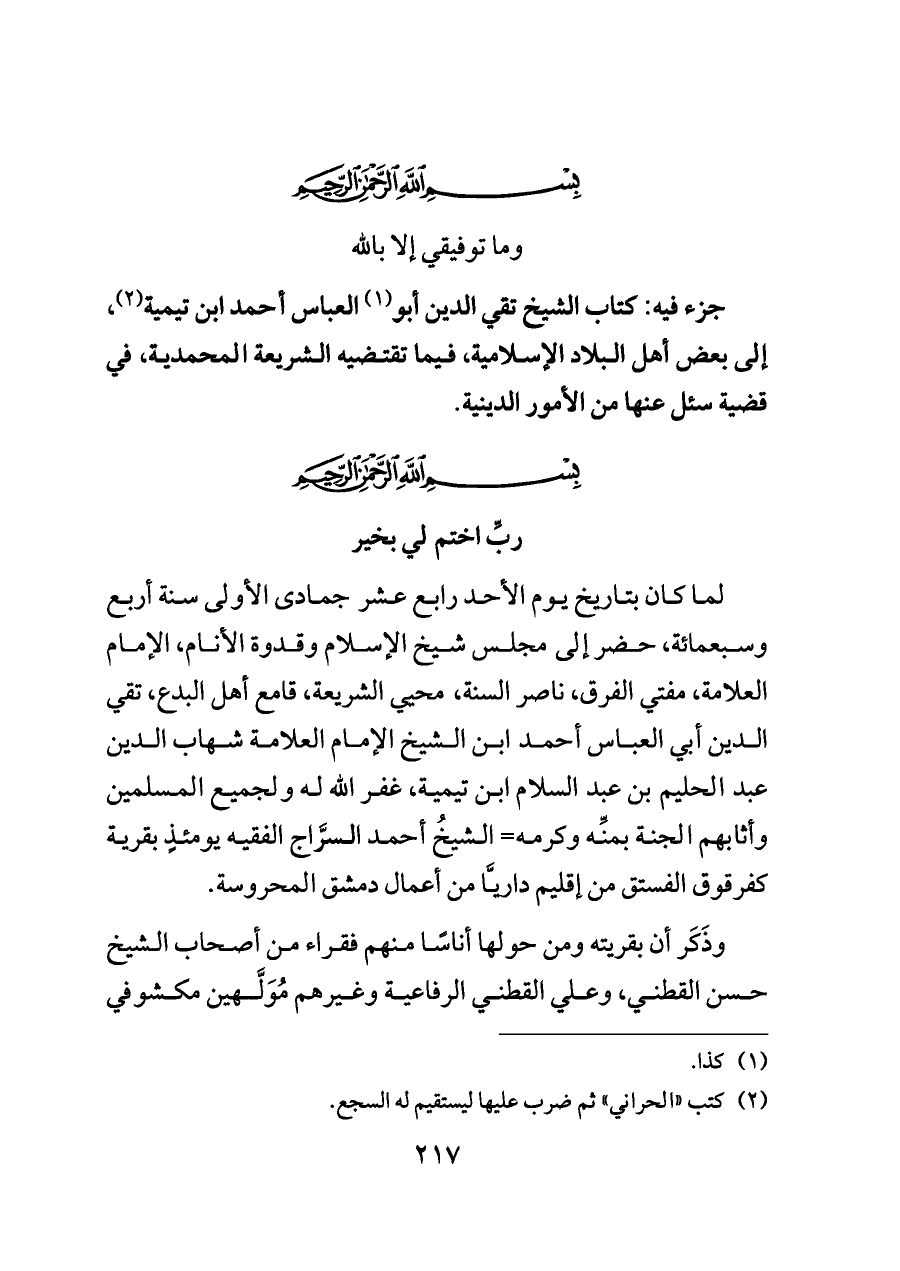 بِسْمِ اللَّهِ الرَّحْمَٰنِ الرَّحِيمِ
وما توفيقي إلا بالله
جزء فيه: كتاب الشيخ تقي الدين أبو(١) العباس أحمد ابن تيمية(٢)،
إلى بعض أهل البلاد الإسلامية، فيما تقتضيه الشريعة المحمدية، في
قضية سئل عنها من الأمور الدينية.
بِسْمِ اللَّهِ الرَّحْمَٰنِ الرَّحِيمِ
ربِّ اختم لي بخير
لما كان بتاريخ يوم الأحد رابع عشر جمادى الأولى سنة أربع
وسبعمائة، حضر إلى مجلس شيخ الإسلام وقدوة الأنام، الإمام
العلامة، مفتي الفرق، ناصر السنة، محيي الشريعة، قامع أهل البدع، تقي
الدين أبي العباس أحمد ابن الشيخ الإمام العلامة شهاب الدين
عبد الحليم بن عبد السلام ابن تيمية، غفر الله له ولجميع المسلمين
وأثابهم الجنة بمنِّه وكرمه= الشيخُ أحمد السرَّاج الفقيه يومئذٍ بقرية
كفرقوق الفستق من إقليم داريَّا من أعمال دمشق المحروسة.
وذَكَر أن بقريته ومن حولها أناسًا منهم فقراء من أصحاب الشيخ
حسن القطني، وعلي القطني الرفاعية وغيرهم مُوَلَّهين مكشوفي
(١) كذا.
(٢) كتب «الحراني» ثم ضرب عليها ليستقيم له السجع.
٢١٧